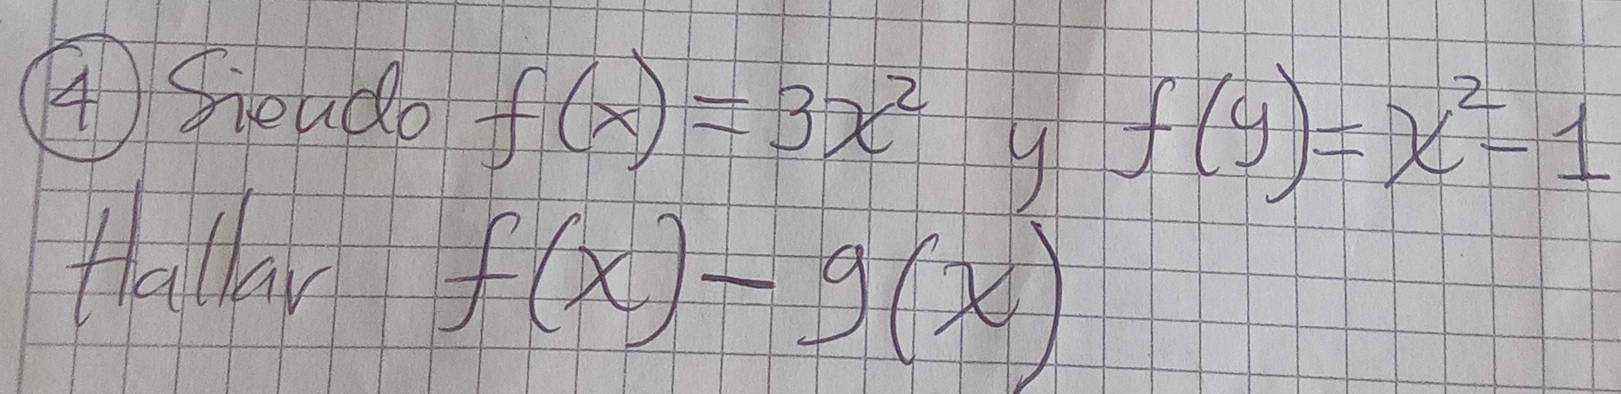 ④ Siendo f(x) = 3x² y f(y) = x² - 1
Hallar f(x) - g(x)